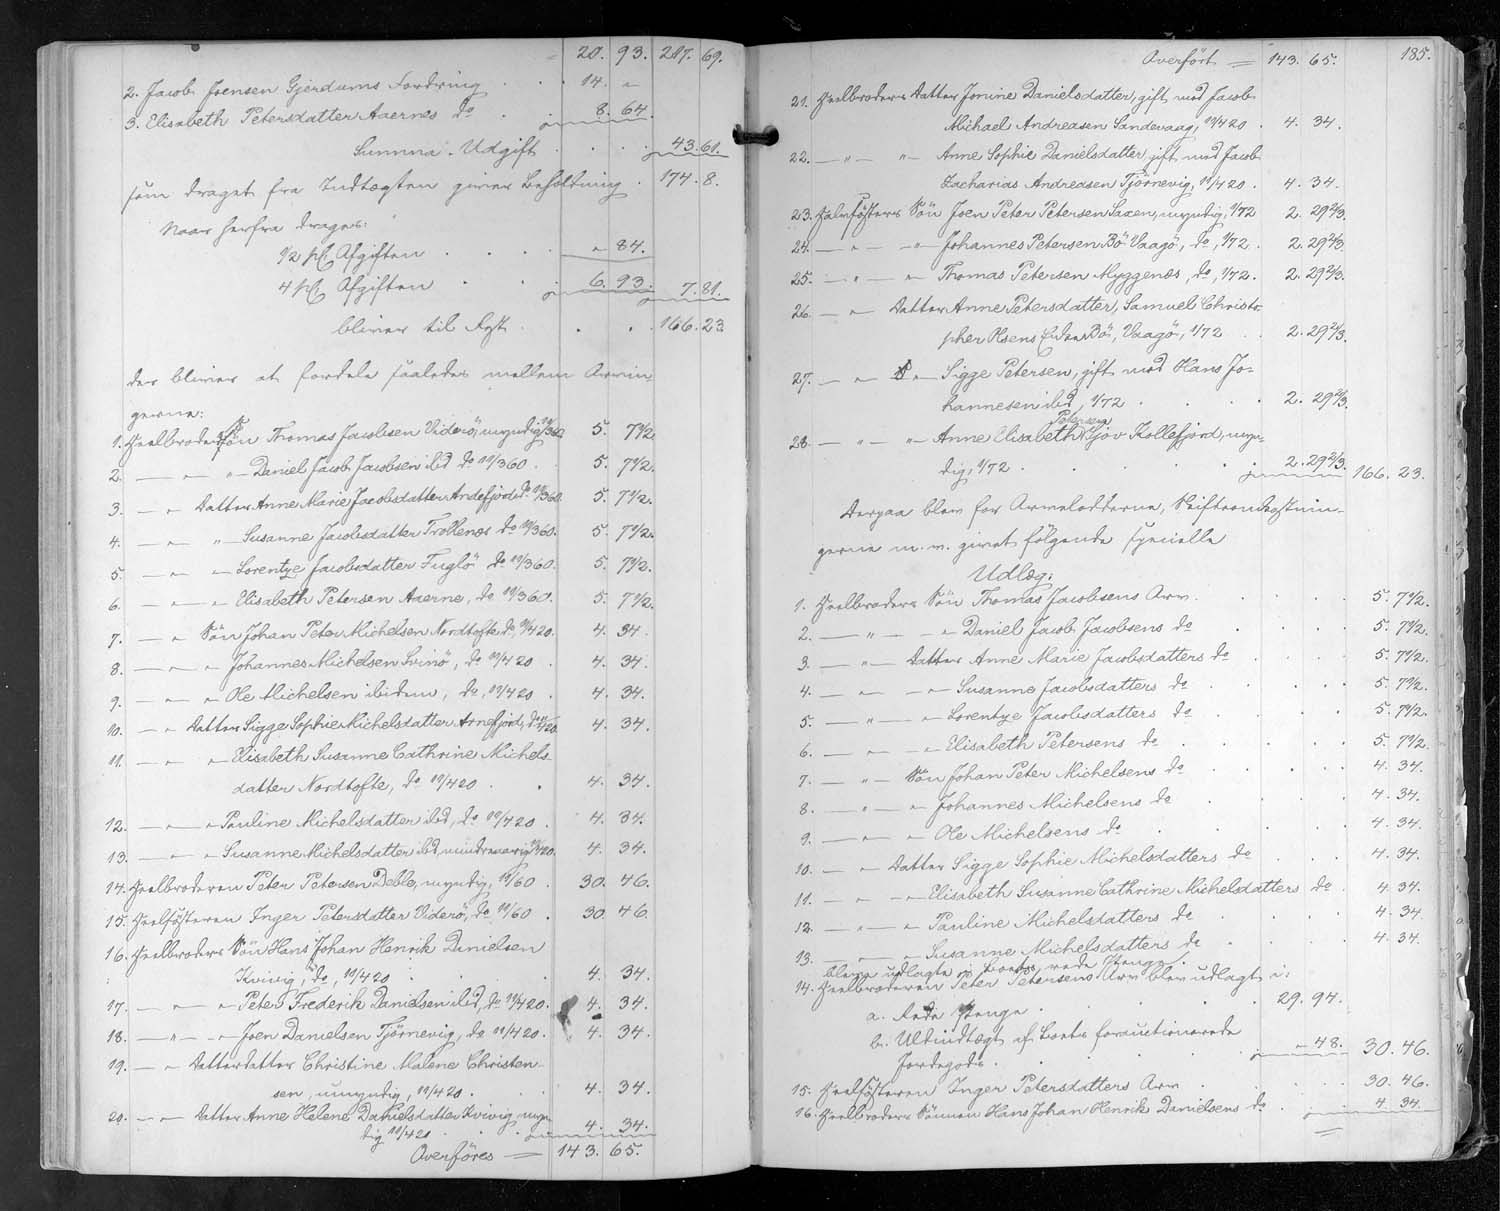 = 20. 93. 217. 69.
2. Jacob Joensen Gjerdums Fordring . . 14. "
3. Elisabeth Petersdatter Aaernes do . 8. 64.
Summa Udgift . . . . 43. 61.
som draget fra Indtægten giver Beholdning . 174. 8.
Naar herfra drages:
1/2 pCt Afgiften . . . " 84.
4 pCt Afgiften . . 6. 93. 7. 81.
bliver til Rest . . . . 166. 23.
der bliver at fordele saaledes mellem Arvin-
gerne:
1. Heelbroders Søn Thomas Jacobsen Viderö, myndig 11/360 5. 7 1/2.
2. — " — " — Daniel Jacob Jacobsen ibd do 11/360 . 5. 7 1/2.
3. — " — Datter Anne Marie Jacobsdatter Andefjord do 11/360. 5. 7 1/2.
4. — " — " — Susanne Jacobsdatter Trollenæs do 11/360. 5. 7 1/2.
5. — " — " — Lorentze Jacobsdatter Fuglö do 11/360. 5. 7 1/2.
6. — " — " — Elisabeth Petersen Aaerne, do 11/360. 5. 7 1/2.
7. — " — Søn Johan Peter Michelsen Nordtofte do, 11/420. 4. 34.
8. — " — " — Johannes Michelsen Svinö, do 11/420 . 4. 34.
9. — " — " — Ole Michelsen ibidem, do, 11/420 . 4. 34.
10. — " — Datter Sigge Sophie Michelsdatter Arnefjord, do 11/420 4. 34.
11. — " — " — Elisabeth Susanne Cathrine Michels-
datter Nordtofte, do 11/420 . . 4. 34.
12. — " — " — Pauline Michelsdatter ibd, do 11/420 . 4. 34.
13. — " — " — Susanne Michelsdatter ibd, mindreaarig 11/420. 4. 34.
14. Heelbroderen Peter Petersen Deble, myndig, 11/60 . 30. 46.
15. Heelsösteren Inger Petersdatter Viderö, do 11/60 . 30. 46.
16. Heelbroders Søn Hans Johan Henrik Danielsen
Kvivig, do, 11/420 . . . 4. 34.
17. — " — " — Peter Frederik Danielsen ibd, do 11/420. 4. 34.
18. — " — " — Joen Danielsen Tjörnevig, do 11/420. 4. 34.
19. — " — Datterdatter Christine Malene Christen-
sen, umyndig, 11/420 . . . 4. 34.
20. — " — Datter Anne Helene Danielsdatter Kvivig, myn-
dig 11/420 . . . 4. 34.
Overföres — 143. 65.
Overfört = 143. 65. 185.
21. Heelbroders Datter Jonine Danielsdatter, gift med Jacob
Michael Andreasen Sandevaag, 11/420 . 4. 34.
22. — " — " — Anne Sophie Danielsdatter gift med Jacob
Zacharias Andreasen Tjörnevig, 11/420 . 4. 34.
23. Halvsösters Søn Joen Peter Petersen Saxen, myndig, 1/72 2. 29 2/3.
24. — " — " — Johannes Petersen Bö Vaagö, do, 1/72 . 2. 29 2/3.
25. — " — " — Thomas Petersen Myggenæs, do, 1/72 . 2. 29 2/3.
26. — " — Datter Anne Petersdatter, Samuel Christo-
pher Olsens Enke Bö, Vaagö, 1/72 . . 2. 29 2/3.
27. — " — " — Sigge Petersen, gift med Hans Jo-
hannesen ibd, 1/72 . . . . 2. 29 2/3.
28. — " — " — Anne Elisabeth Petersen Gjov Kollefjord, myn-
dig, 1/72 . . . . . 2. 29 2/3. 166. 23.
Derpaa blev for Arvelodderne, Skifteomkostnin-
gerne m. v. givet følgende specielle
Udlæg:
1. Heelbroders Søn Thomas Jacobsens Arv . . . . 5. 7 1/2.
2. — " — " — Daniel Jacob Jacobsens do . . . . 5. 7 1/2.
3. — " — Datter Anne Marie Jacobsdatters do . . . . 5. 7 1/2.
4. — " — " — Susanne Jacobsdatters do . . . . 5. 7 1/2.
5. — " — " — Lorentze Jacobsdatters do . . . . 5. 7 1/2.
6. — " — " — Elisabeth Petersens do . . . . 5. 7 1/2.
7. — " — Søn Johan Peter Michelsens do . . . . 4. 34.
8. — " — " — Johannes Michelsens do . . . . 4. 34.
9. — " — " — Ole Michelsens do . . . . 4. 34.
10. — " — Datter Sigge Sophie Michelsdatters do . . . 4. 34.
11. — " — " — Elisabeth Susanne Cathrine Michelsdatters do . 4. 34.
12. — " — " — Pauline Michelsdatters do . . . . 4. 34.
13. — " — " — Susanne Michelsdatters do . . . . 4. 34.
bleve udlagte i Boets rede Penge.
14. Heelbroderen Peter Petersens Arv blev udlagt i:
a. Rede Penge . . . . 29. 94.
b. Udbindtægt af Boets forauctionerede
Jordegods . . . . " 48. 30. 46.
15. Heelsösteren Inger Petersdatters Arv . . . . 30. 46.
16. Heelbroders Sønnen Hans Johan Henrik Danielsens do . . 4. 34.